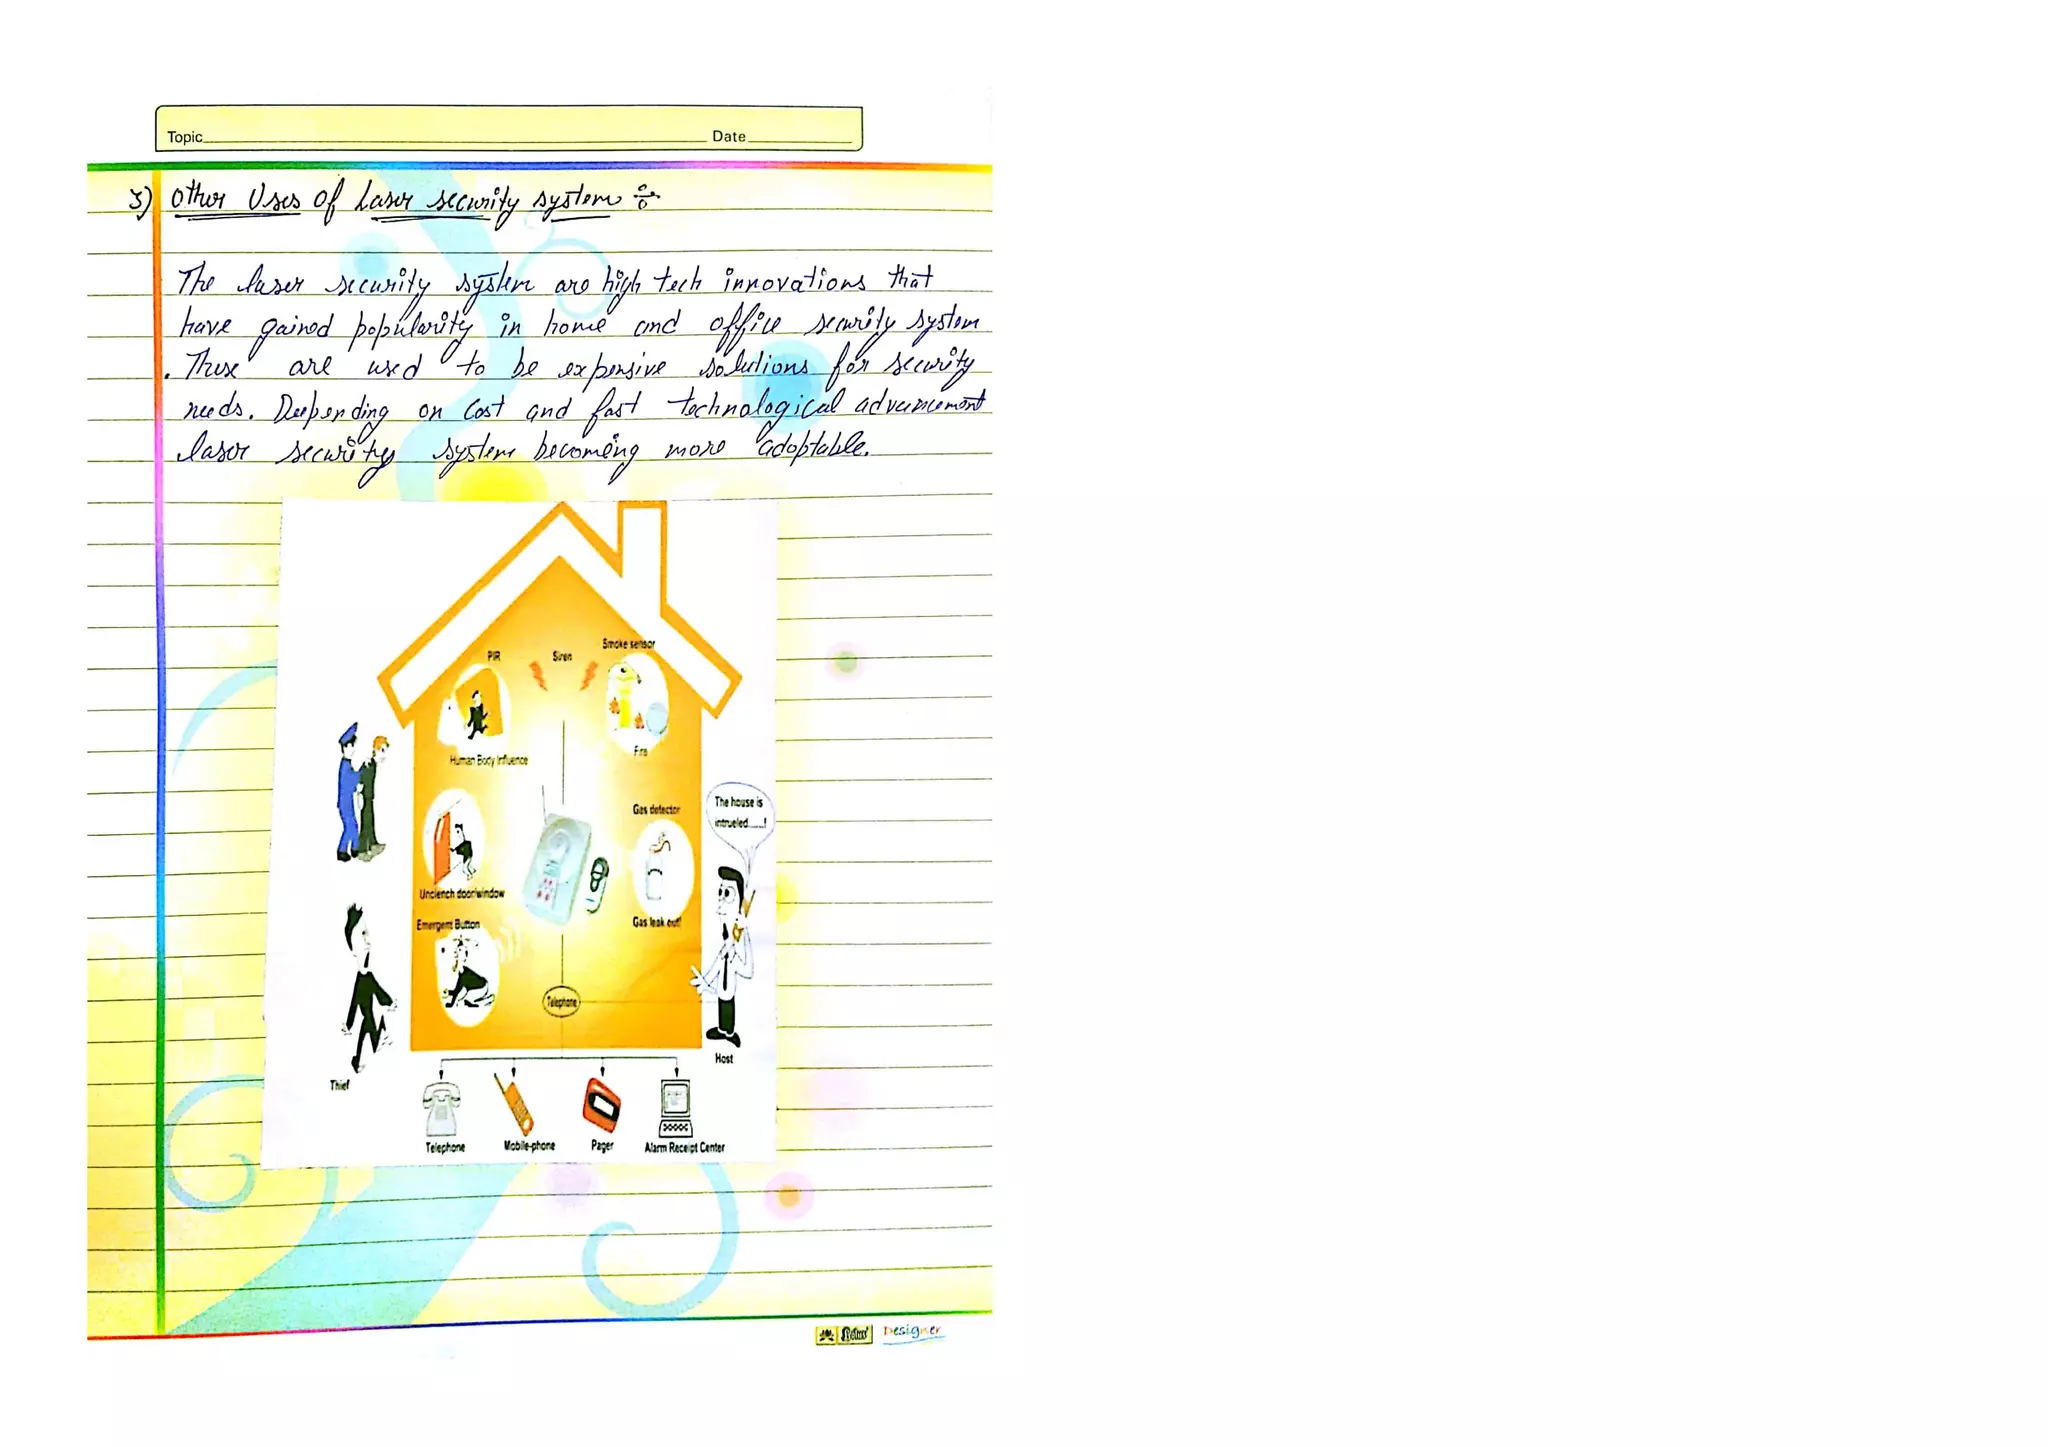 Topic Date
3) Other Uses of Laser security system :-
The laser security system are high tech innovations that
have gained popularity in home and office security system
. These are used to be expensive solutions for security
needs. Deepending on Cost and fast technological advancement
laser security system becoming more adoptable.
Smoke sensor
PIR Siren
Fire
Human Body Influence
The house is
intrueled......!
Gas detector
Unclench door/window
Gas leak out!
Emergent Button
Telephone
Host
Thief
Telephone Mobile-phone Pager Alarm Receipt Center
Lotus Designer